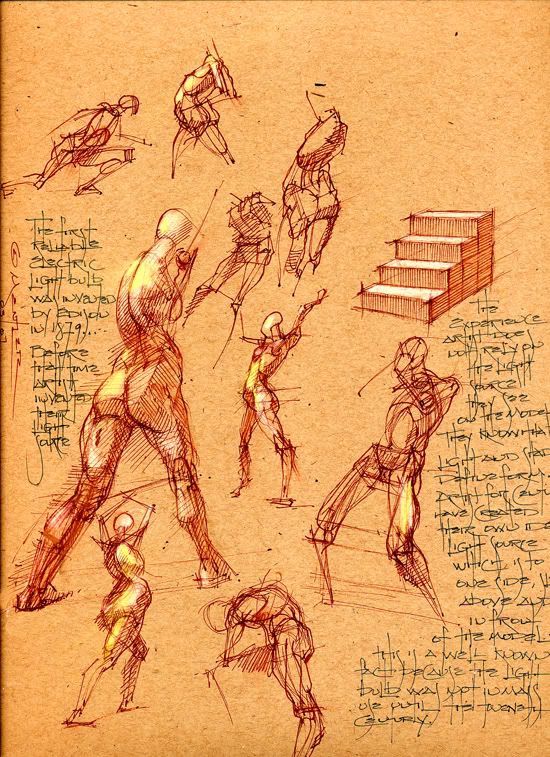 The first
reliable
electric
light bulb
was invented
by Edison
in 1879....
Before
that time
artist
invented
their
light
source
The
experience
artist does
not rely on
the light
source
they see
on the model
they know that
light and
define form.
artist for
have created
their own
light source
which is to
one side,
above and
in front
of the model
this is a well known
fact because the light
bulb was not in mass
use until the twenety
century.